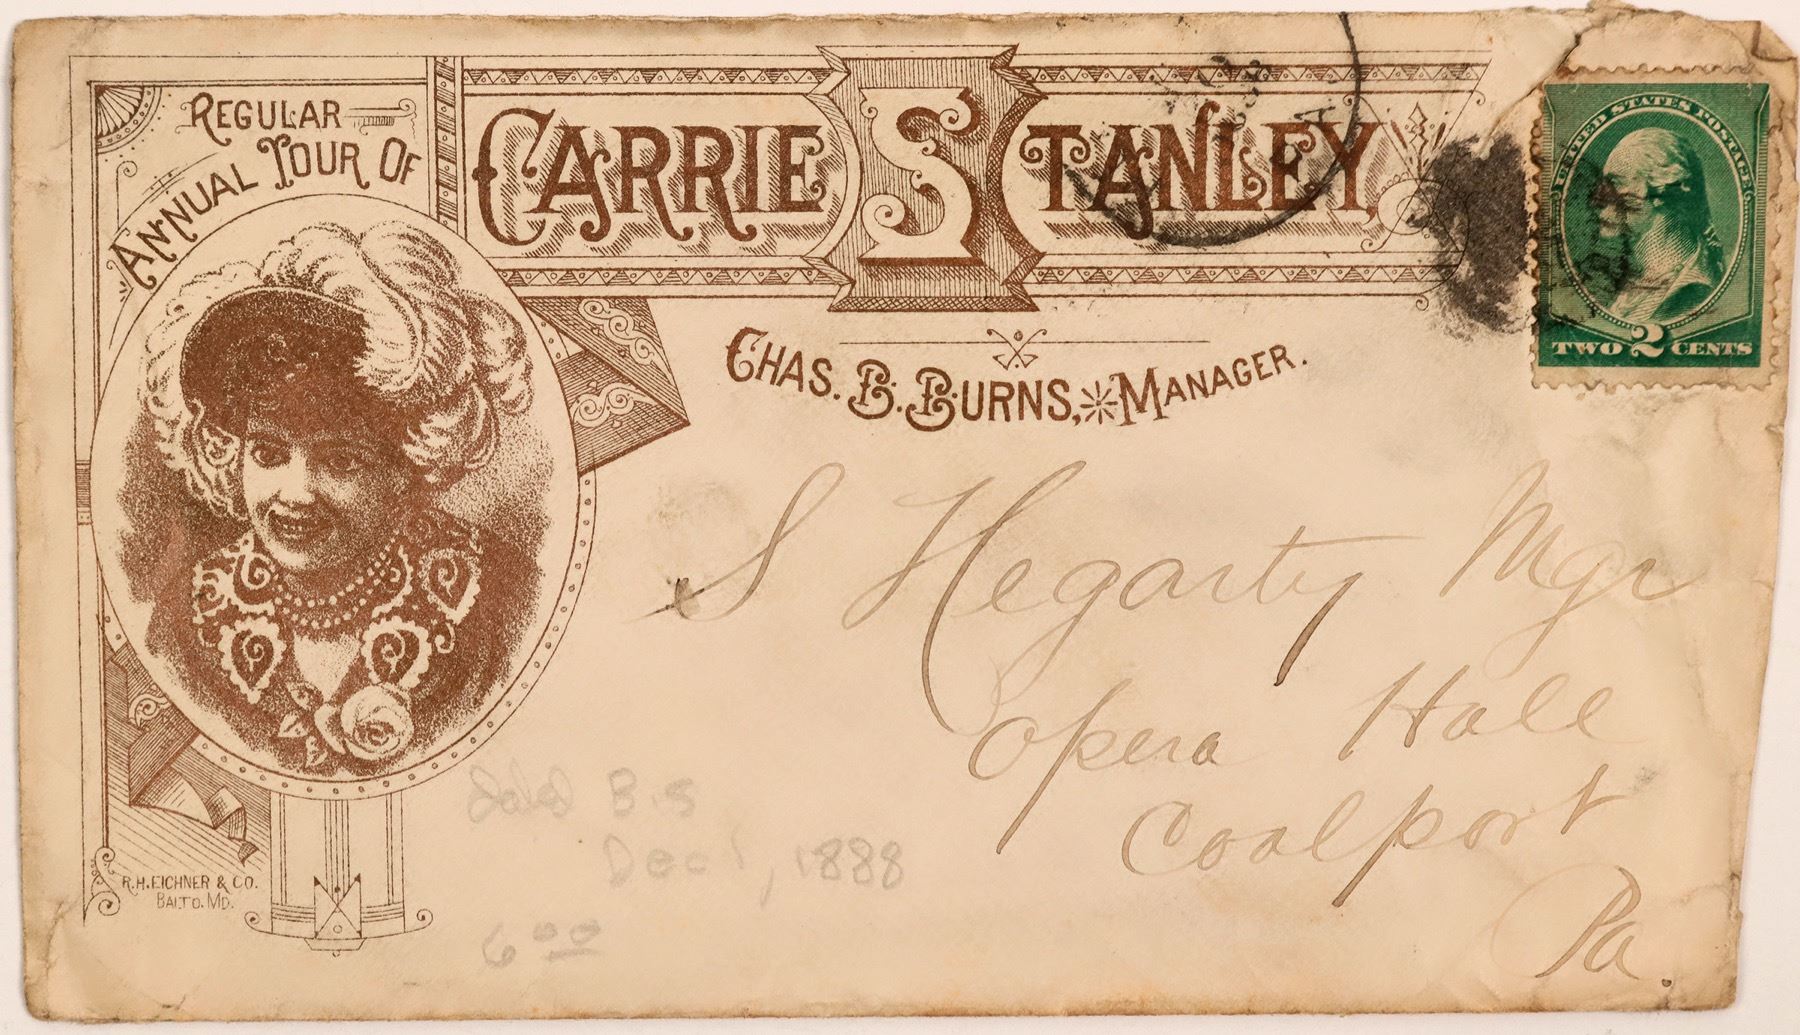 REGULAR
ANNUAL TOUR OF
CARRIE STANLEY,
CHAS. B. BURNS, MANAGER.
UNITED STATES POSTAGE
TWO 2 CENTS
S Hegarty Mgr
Opera Hall
Coalport
Pa.
B.S
Dec 1, 1888
6 00
R.H. EICHNER & CO.
BALTO. MD.